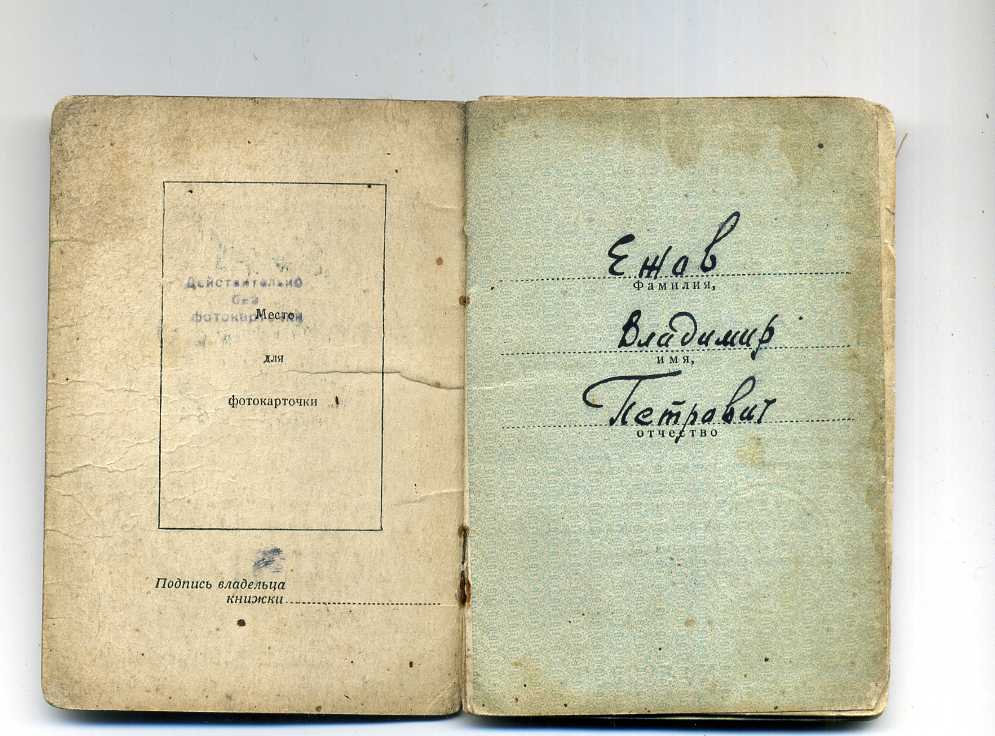 Действительно
без
фотокарточки
Место
для
фотокарточки
Подпись владельца
книжки
Ежов
Фамилия,
Владимир
имя,
Петрович
отчество